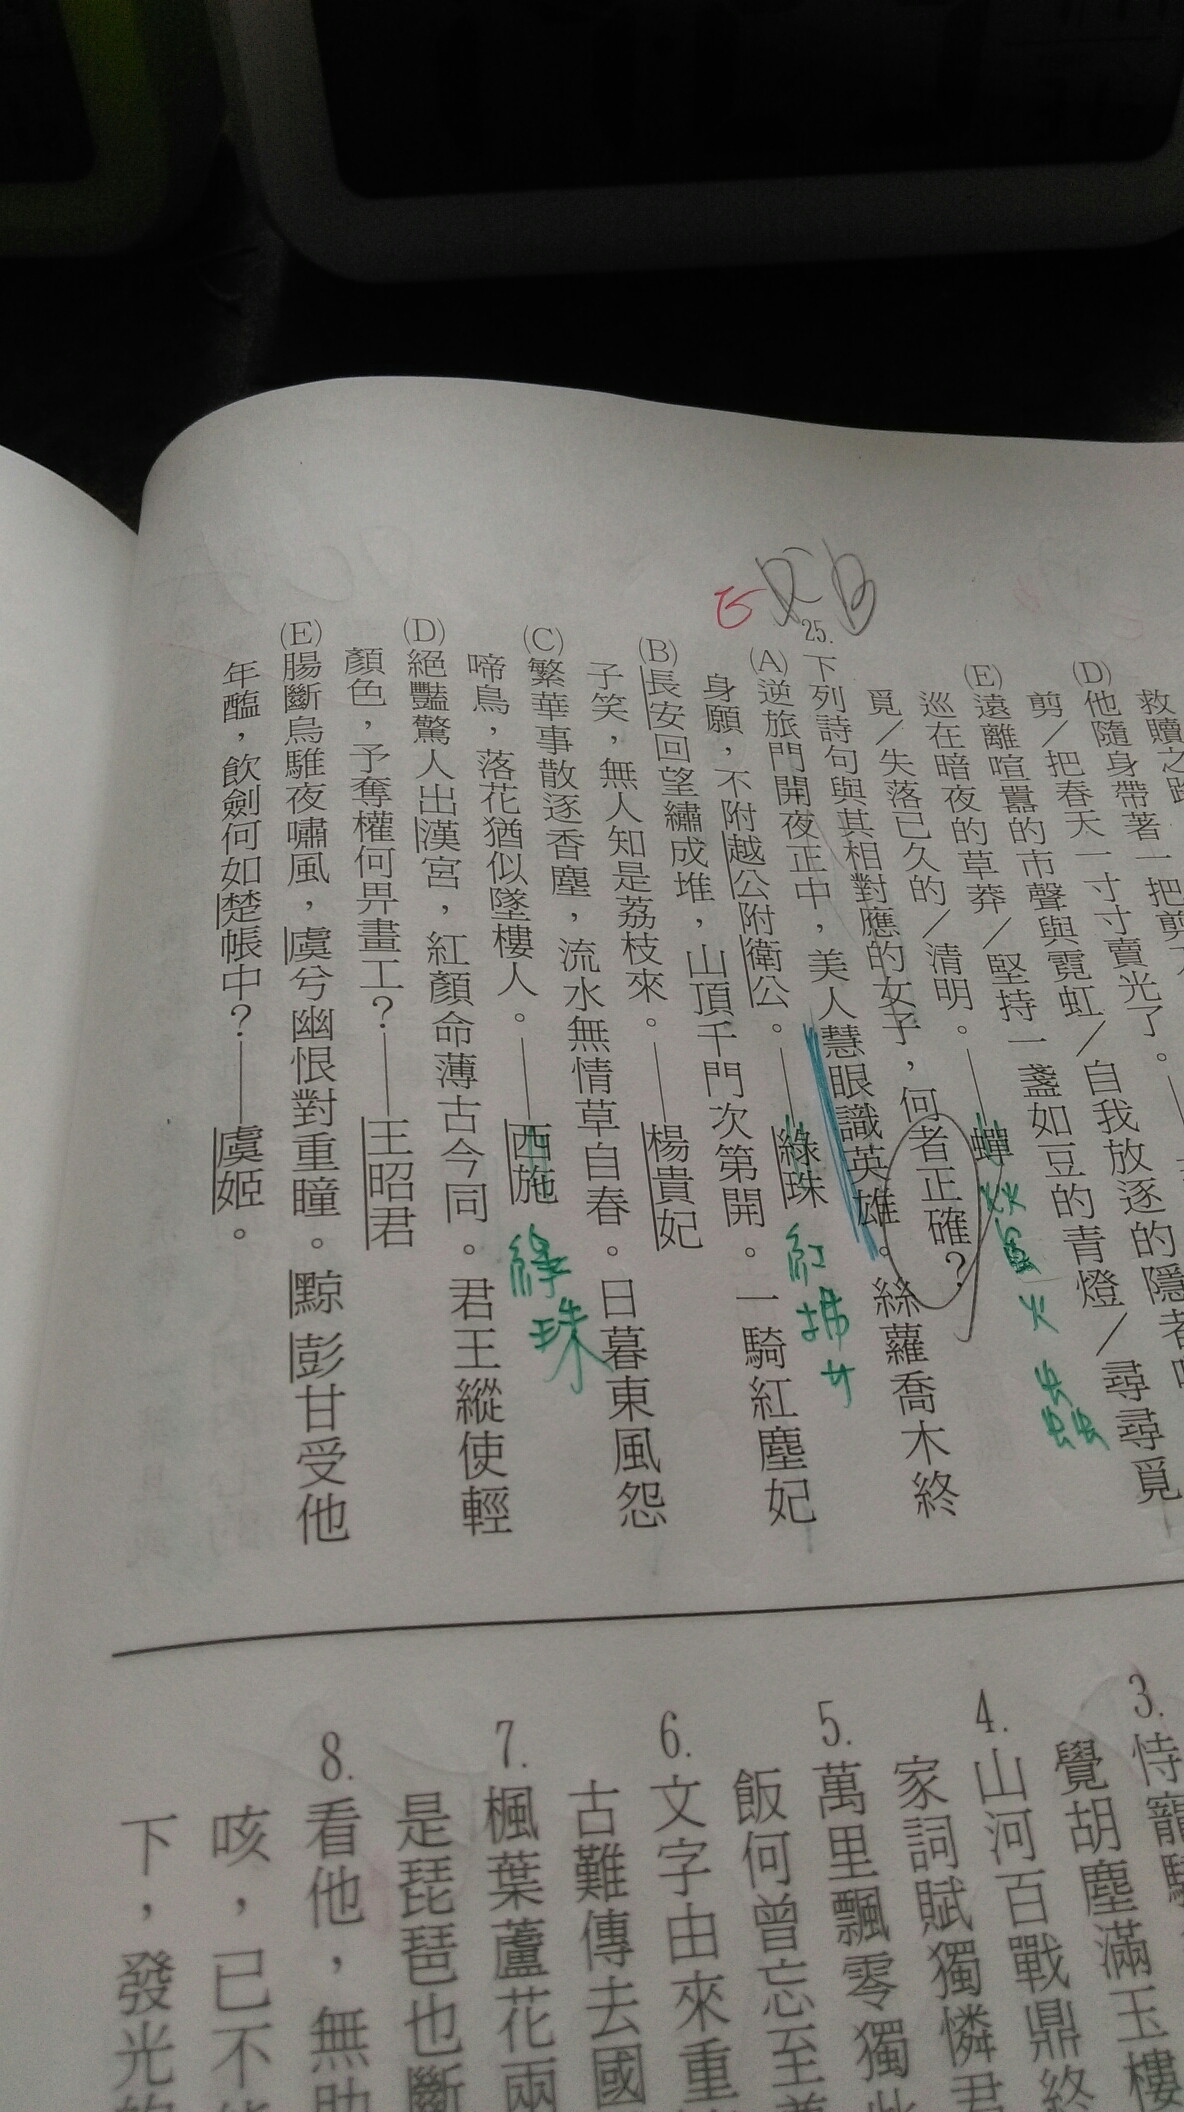 救贖之路
(D)他隨身帶著一把剪
剪／把春天一寸寸賣光了。
(E)遠離喧囂的市聲與霓虹／自我放逐的隱者
巡在暗夜的草莽／堅持一盞如豆的青燈／尋尋覓
覓／失落已久的／清明。——蟬
螢火蟲
25.下列詩句與其相對應的女子，何者正確？
(A)逆旅門開夜正中，美人慧眼識英雄。絲蘿喬木終
身願，不附越公附衛公。——綠珠
紅拂女
(B)長安回望繡成堆，山頂千門次第開。一騎紅塵妃
子笑，無人知是荔枝來。——楊貴妃
(C)繁華事散逐香塵，流水無情草自春。日暮東風怨
啼鳥，落花猶似墜樓人。——西施
綠珠
(D)絕豔驚人出漢宮，紅顏命薄古今同。君王縱使輕
顏色，予奪權何畀畫工？——王昭君
(E)腸斷烏騅夜嘯風，虞兮幽恨對重瞳。黥彭甘受他
年醢，飲劍何如楚帳中？——虞姬。
3.恃寵
覺胡塵滿玉樓
4.山河百戰鼎終
家詞賦獨憐君
5.萬里飄零獨此
飯何曾忘至尊
6.文字由來重
古難傳去國
7.楓葉蘆花兩
是琵琶也斷
8.看他，無助
咳，已不能
下，發光的